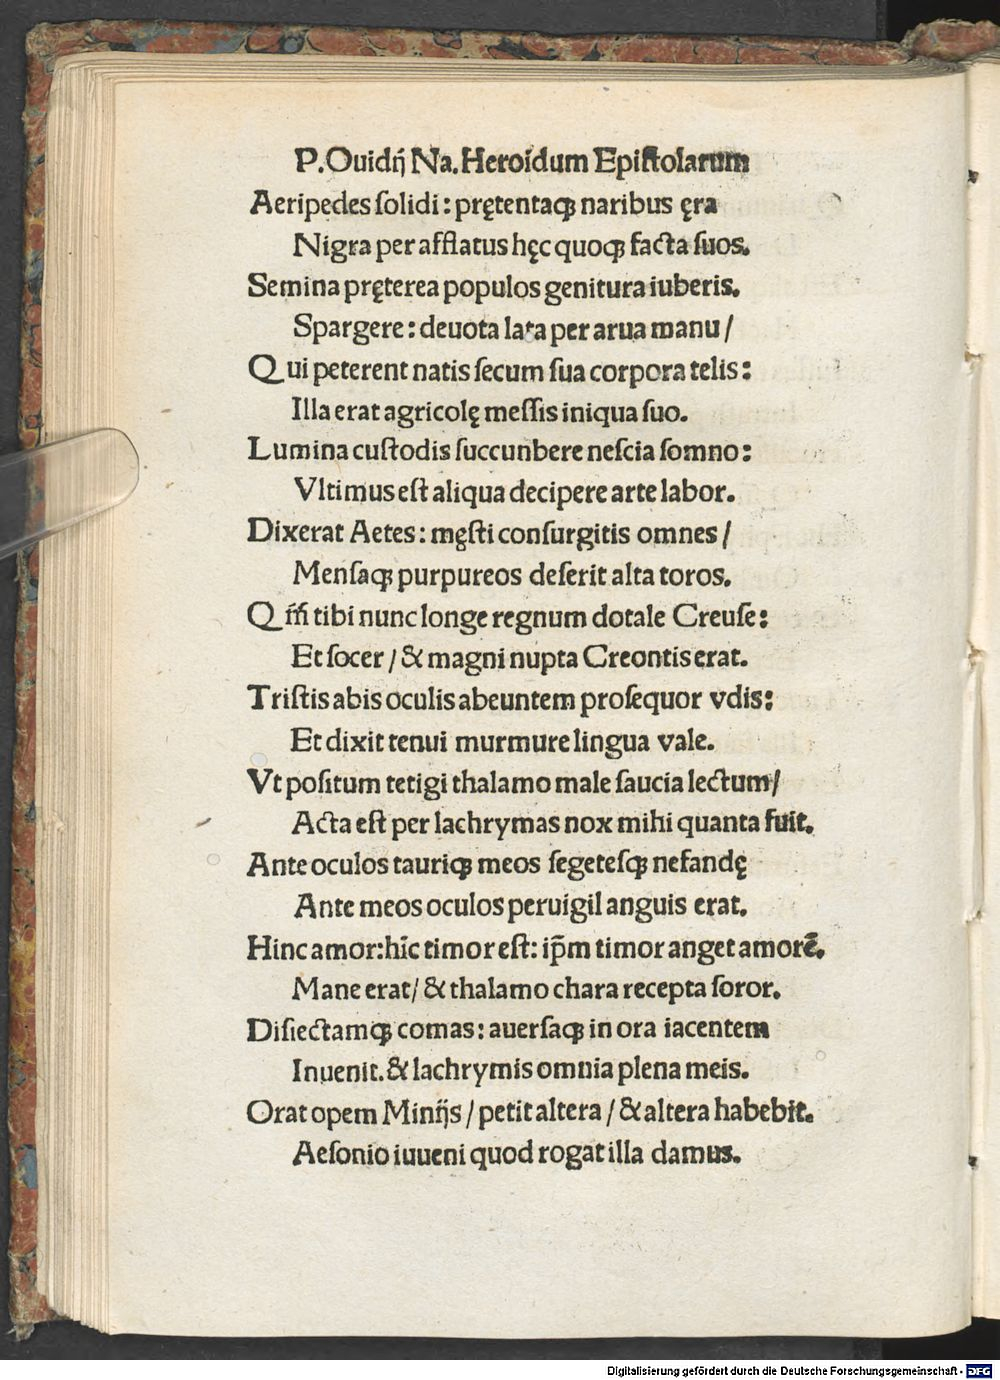 P.Ouidĳ Na.Heroidum Epiſtolarum
Aeripedes ſolidi : prętentaqꝫ naribus ęra
Nigra per afflatus hęc quoqꝫ facta ſuos.
Semina pręterea populos genitura iuberis.
Spargere : deuota lata per arua manu /
Qui peterent natis ſecum ſua corpora telis :
Illa erat agricolę meſſis iniqua ſuo.
Lumina cuſtodis ſuccunbere neſcia ſomno :
Vltimus eſt aliqua decipere arte labor.
Dixerat Aetes : męſti conſurgitis omnes /
Menſaqꝫ purpureos deſerit alta toros.
Q̃m̃ tibi nunc longe regnum dotale Creuſe :
Et ſocer / & magni nupta Creontis erat.
Triſtis abis oculis abeuntem proſequor vdis :
Et dixit tenui murmure lingua vale.
Vt poſitum tetigi thalamo male ſaucia lectum /
Acta eſt per lachrymas nox mihi quanta fuit.
Ante oculos tauriqꝫ meos ſegeteſqꝫ nefandę
Ante meos oculos peruigil anguis erat.
Hinc amor : hĩc timor eſt : ip̃m timor anget amorẽ.
Mane erat / & thalamo chara recepta ſoror.
Diſiectamqꝫ comas : auerſaqꝫ in ora iacentem
Inuenit. & lachrymis omnia plena meis.
Orat opem Minĳs / petit altera / & altera habebit.
Aeſonio iuueni quod rogat illa damus.
Digitalisierung gefördert durch die Deutsche Forschungsgemeinschaft - DFG